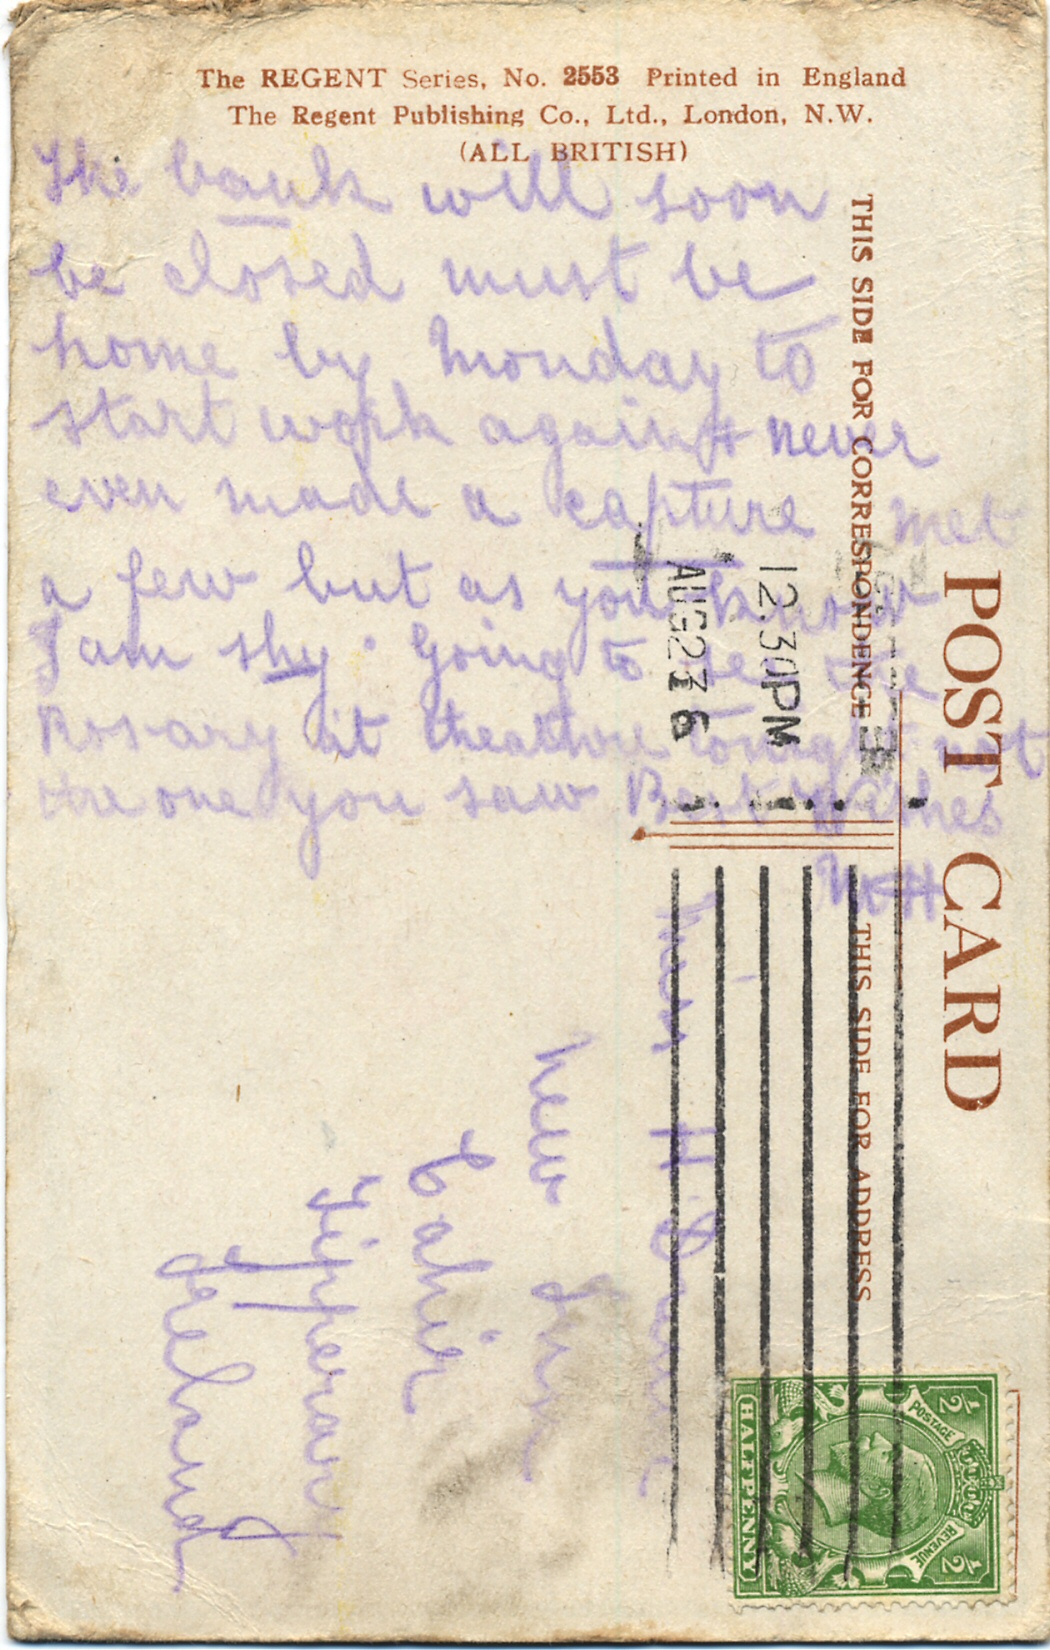 The REGENT Series, No. 2553 Printed in England
The Regent Publishing Co., Ltd., London, N.W.
(ALL BRITISH)
The bank will soon
be closed must be
home by Monday to
start work again never
even made a capture met
a few but as you know
I am shy. Going to see the
Rosary at theatre tonight not
the one you saw Best Wishes
MH
POST CARD
THIS SIDE FOR CORRESPONDENCE
THIS SIDE FOR ADDRESS
12 30PM
AUG 23 16
Miss H
New Inn
Cahir
Tipperary
Ireland
POSTAGE
REVENUE
½ ½
HALFPENNY